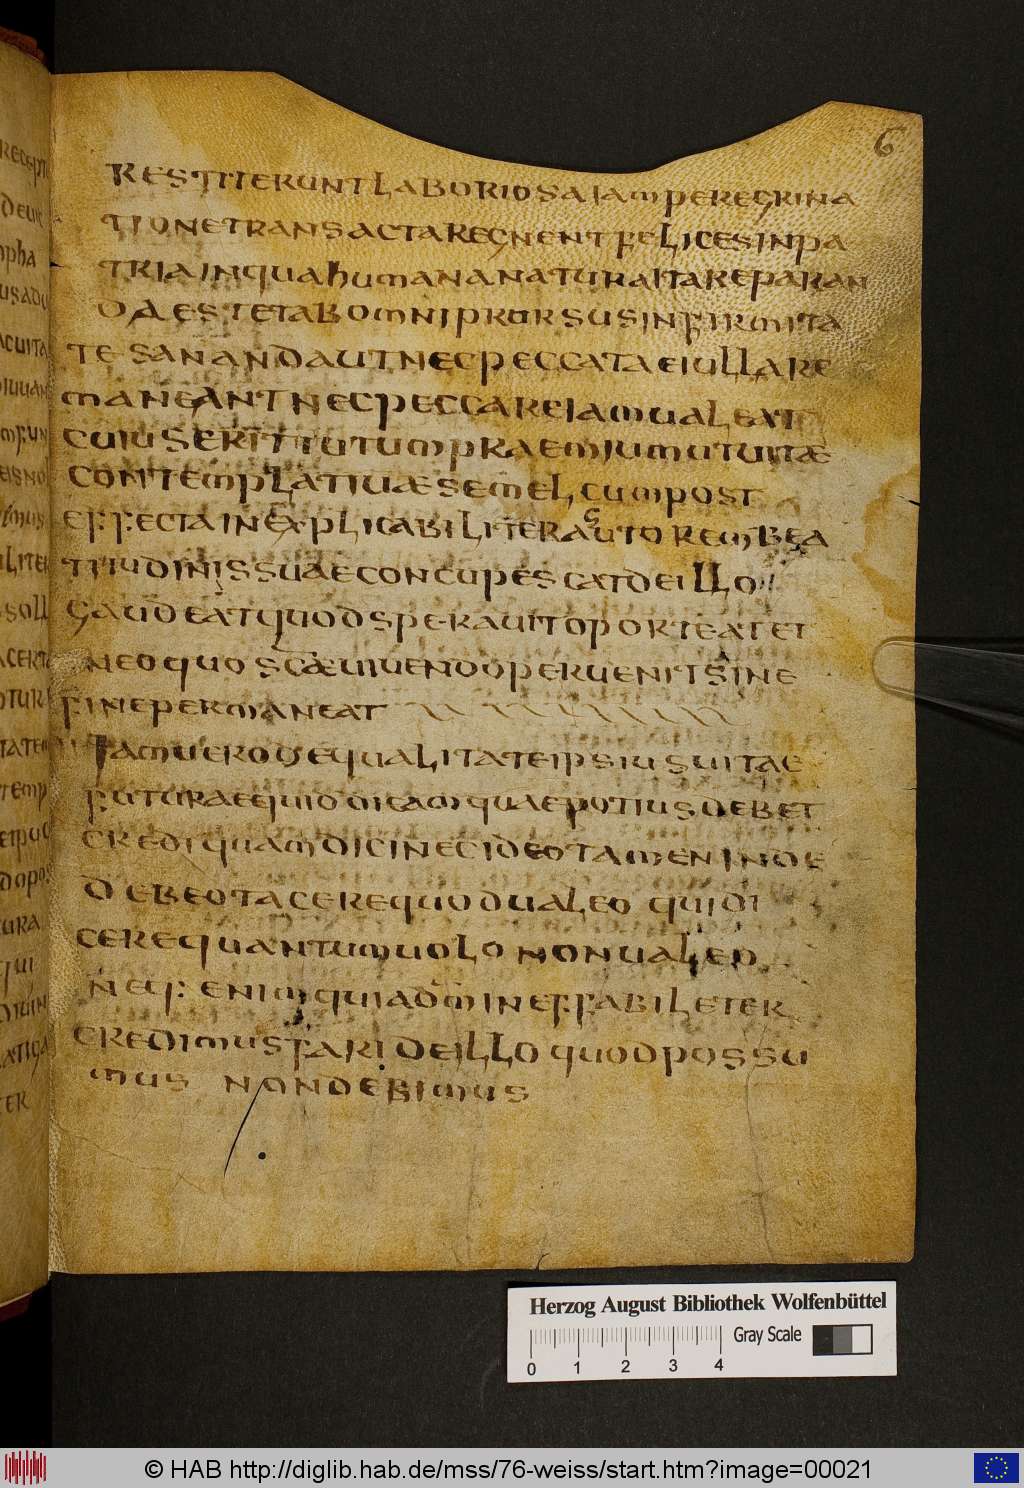 6
RESTITERUNTLABORIOSAIAMPEREGRINA
TIONETRANSACTAREGNENTFELICESINPA
TRIAINQUAHUMANANATURAITAREPARAN
DAESTETABOMNIPRORSUSINFIRMITA
TESANANDAUTNECPECCATAEIULLARE
MANEANTNECPECCAREIAMUALEAT
CUIUSERITTUTUMPRAEMIUMUTUITÆ
CONTEMPLATIUÆSEMEL,CUMPOST
EFFECTAINEXPLICABILITERAUCTOREMBEA
TITUDINISSUAECONCUPESCATDEILLO
GAUDEATQUODSPERAUITOPORTEATET
INEOQUOSCÆUIUENDOPERUENITSINE
FINEPERMANEAT
IAMUERODEQUALITATEIPSIUSUITAE
FUTURAEQUIDDICAMQUAEPOTIUSDEBET
CREDIQUAMDICINECIDEOTAMENINDE
DEBEOTACEREQUODUALEO QUIDI
CEREQUANTUMUOLO NONUALEO
NEQ: ENIMQUIADMINEFFABILETER
CREDIMUSFARIDEILLO QUODPOSSU
MUS NONDEBIMUS
Herzog August Bibliothek Wolfenbüttel
Gray Scale
0 1 2 3 4
© HAB http://diglib.hab.de/mss/76-weiss/start.htm?image=00021